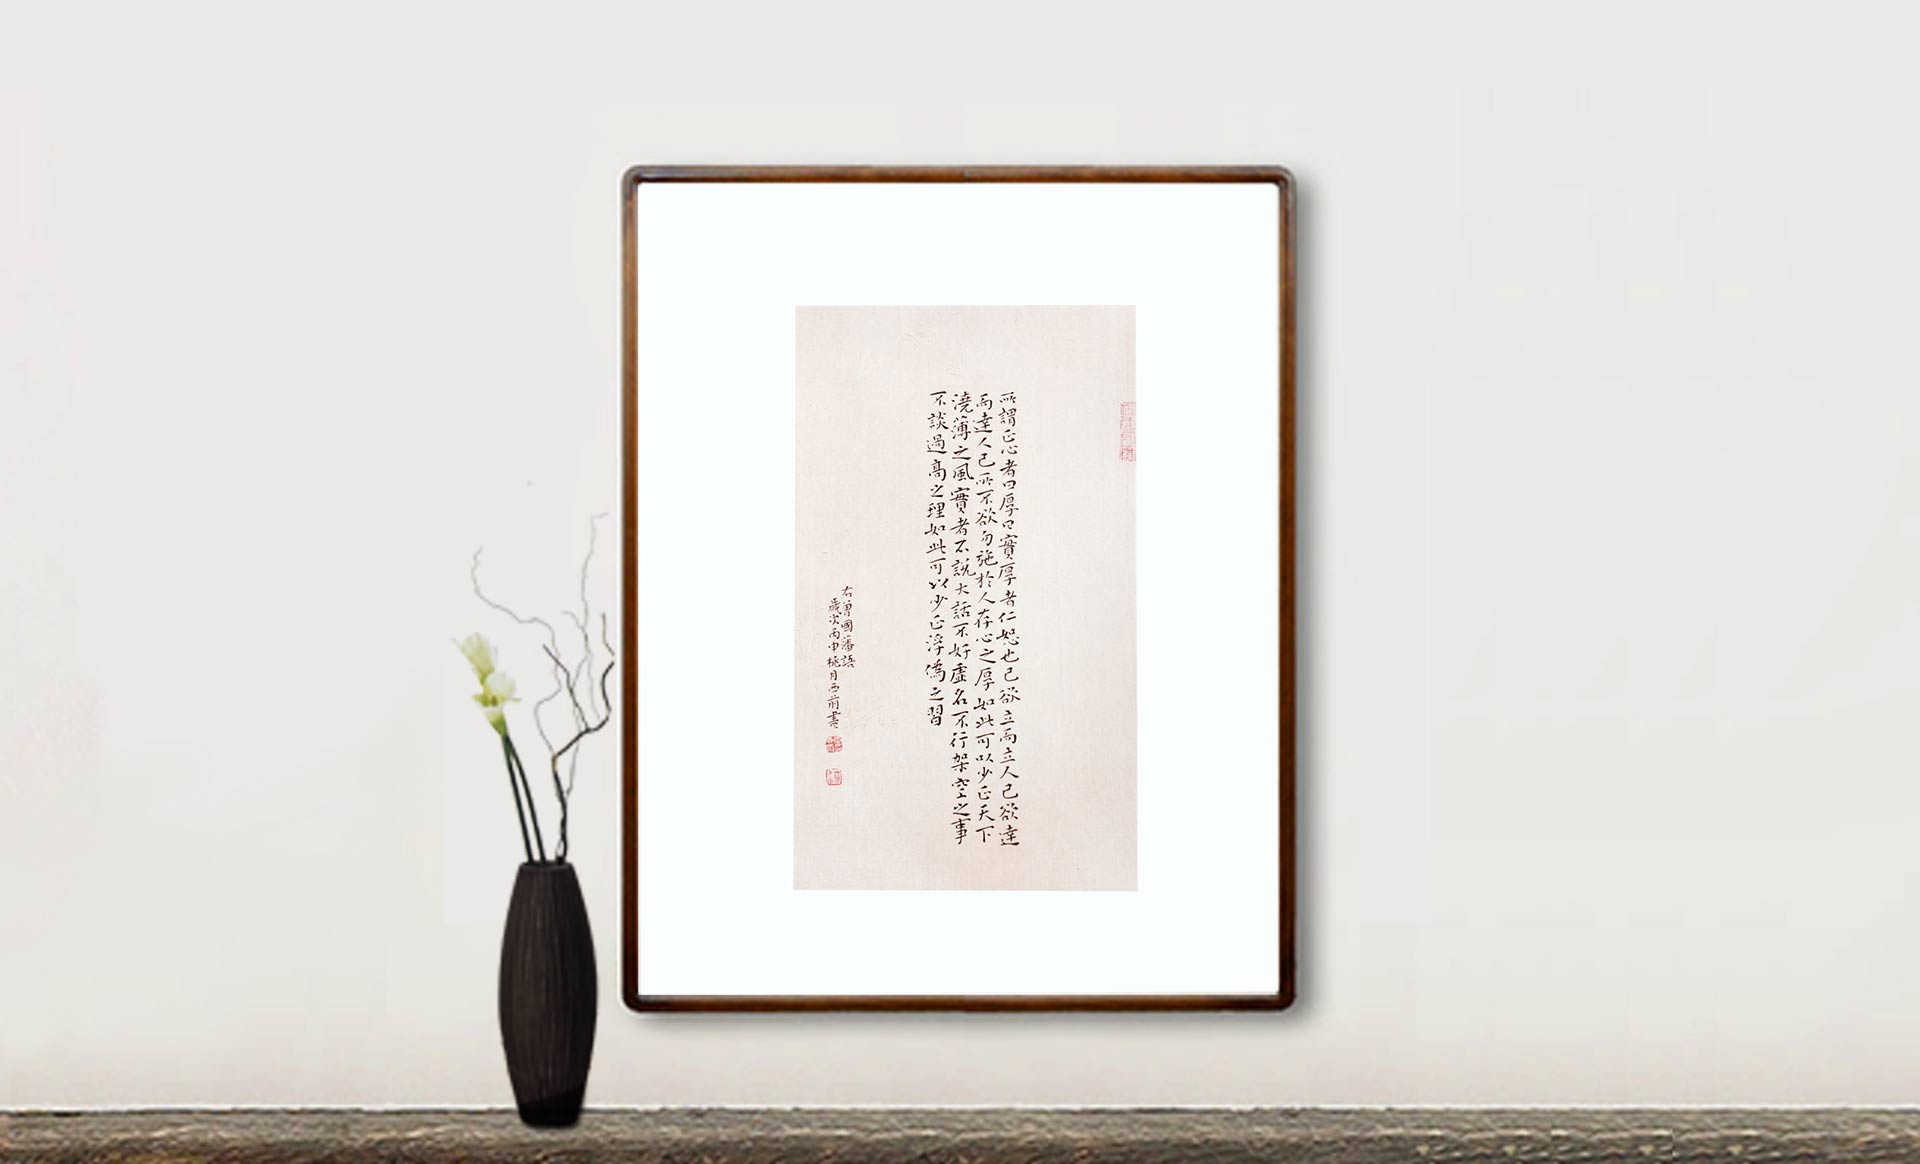 所謂正心者曰厚曰實厚者仁恕也己欲立而立人己欲達
而達人己所不欲勿施於人存心之厚如此可以少正天下
澆薄之風實者不說大話不好虛名不行架空之事
不談過高之理如此可以少正浮偽之習
右曾國藩語
歲次丙申桃月西前書